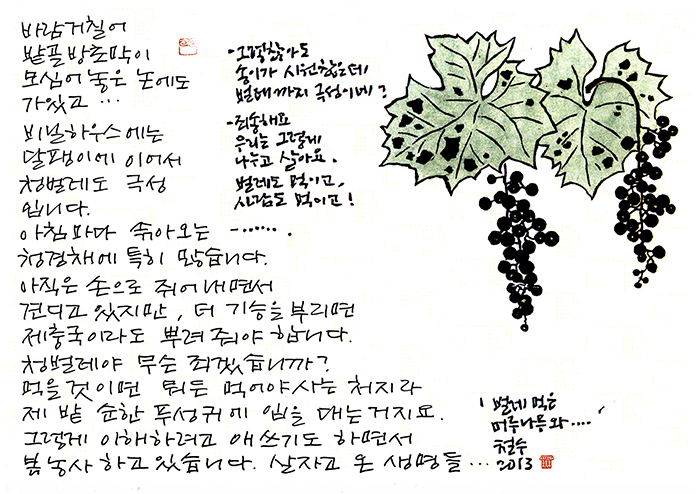 바람거칠어
밭풀방초막이
모심어 놓은 논에도
가있고 ...
비닐하우스에는
달팽이에 이어서
청벌레도 극성
입니다.
아침마다 솎아오는 ㅡ…….
청경채에 특히 많습니다.
아직은 손으로 쥐어내면서
견디고 있지만, 더 기승을부리면
제충국이라도 뿌려줘야 합니다.
청벌레야 무슨 죄겠습니까?
먹을것이면 뭐든 먹어야사는 처지라
제 밭 순한 푸성귀에 입을 대는거지요.
그렇게 이해하려고 애쓰기도 하면서
봄농사 하고있습니다. 살자고 온 생명들...
-그렇찮아도
송이가 시원찮은데
벌레까지 극성이네?
-죄송해요
우리는 그렇게
나누고 살아요.
벌레도 먹이고,
사람도 먹이고!
벌레 먹은
머루나무와....
철수
2013